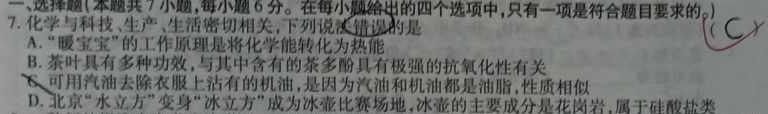 一、选择题(本题共7小题,每小题6分。在每小题给出的四个选项中,只有一项是符合题目要求的。)
7. 化学与科技、生产、生活密切相关,下列说法错误的是 (C)
A. “暖宝宝”的工作原理是将化学能转化为热能
B. 茶叶具有多种功效,与其中含有的茶多酚具有极强的抗氧化性有关
C. 可用汽油去除衣服上沾有的机油,是因为汽油和机油都是油脂,性质相似
D. 北京“水立方”变身“冰立方”成为冰壶比赛场地,冰壶的主要成分是花岗岩,属于硅酸盐类